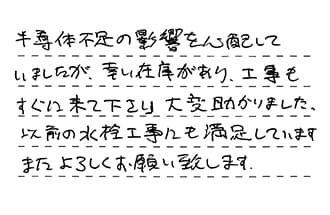 半導体不足の影響を心配して
いましたが、幸い在庫があり、工事も
すぐに来て下さり大変助かりました、
以前の水栓工事にも満足しています
またよろしくお願い致します.